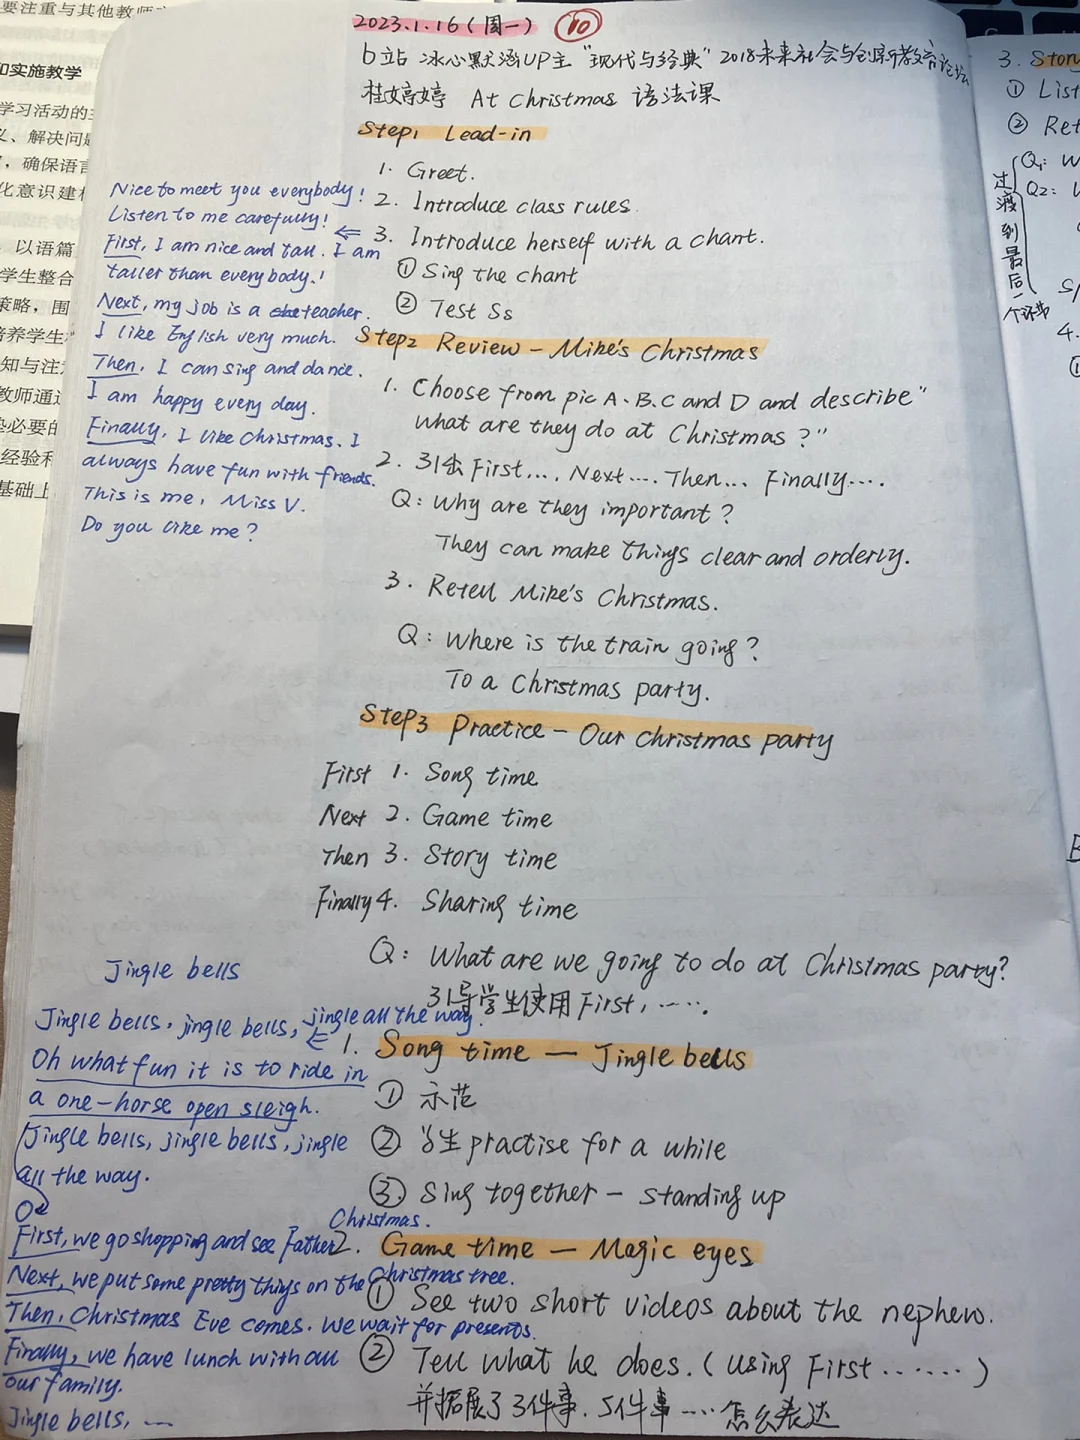 要注重与其他教师
和实施教学
学习活动的主
义、解决问题
，确保语言
化意识建构
以语篇
学生整合
策略，围
培养学生
知与注
教师通过
些必要的
经验和
基础上
2023.1.16(周一) 10
b站 冰心默涵UP主 "现代与经典" 2018未来社会与创新教育论坛
桂婷婷 At Christmas 语法课
Step1 Lead-in
1. Greet.
2. Introduce class rules.
3. Introduce herself with a chant.
① Sing the chant
② Test Ss
Nice to meet you everybody!
Listen to me carefully!
First, I am nice and tall. I am
taller than everybody!
Next, my job is a teacher.
I like English very much.
Then, I can sing and dance.
I am happy every day.
Finally, I like Christmas. I
always have fun with friends.
This is me, Miss V.
Do you like me?
Step2 Review - Mike's Christmas
1. Choose from pic A、B、C and D and describe "
what are they do at Christmas?"
2. 引出 First..., Next.... Then... Finally....
Q: Why are they important?
They can make things clear and orderly.
3. Retell Mike's Christmas.
Q: Where is the train going?
To a Christmas party.
Step3 Practice - Our christmas party
First 1. Song time
Next 2. Game time
Then 3. Story time
Finally 4. Sharing time
Q: What are we going to do at Christmas party?
引导学生使用 First, .......
1. Song time — Jingle bells
① 示范
② 学生 practise for a while
③ Sing together - standing up
Jingle bells
Jingle bells, jingle bells, jingle all the way.
Oh what fun it is to ride in
a one-horse open sleigh.
Jingle bells, jingle bells, jingle
all the way.
First, we go shopping and see Father Christmas.
Next, we put some pretty things on the Christmas tree.
Then, Christmas Eve comes. We wait for presents.
Finally, we have lunch with all
our family.
Jingle bells, ....
2. Game time — Magic eyes
① See two short videos about the nephew.
② Tell what he does. (using First .......)
并拓展了3件事、5件事 ..... 怎么表达
3. Story
① List
② Ret
Q1: W
Q2:
过渡到最后一个环节
4.
①